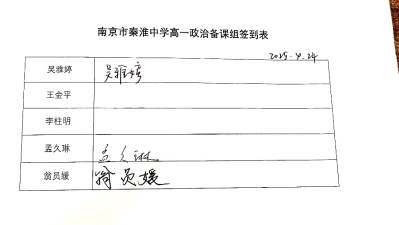 南京市秦淮中学高一政治备课组签到表
2025.4.24
吴雅婷 吴雅婷
王金平
李柱明
孟久琳 孟久琳
翁员媛 翁员媛